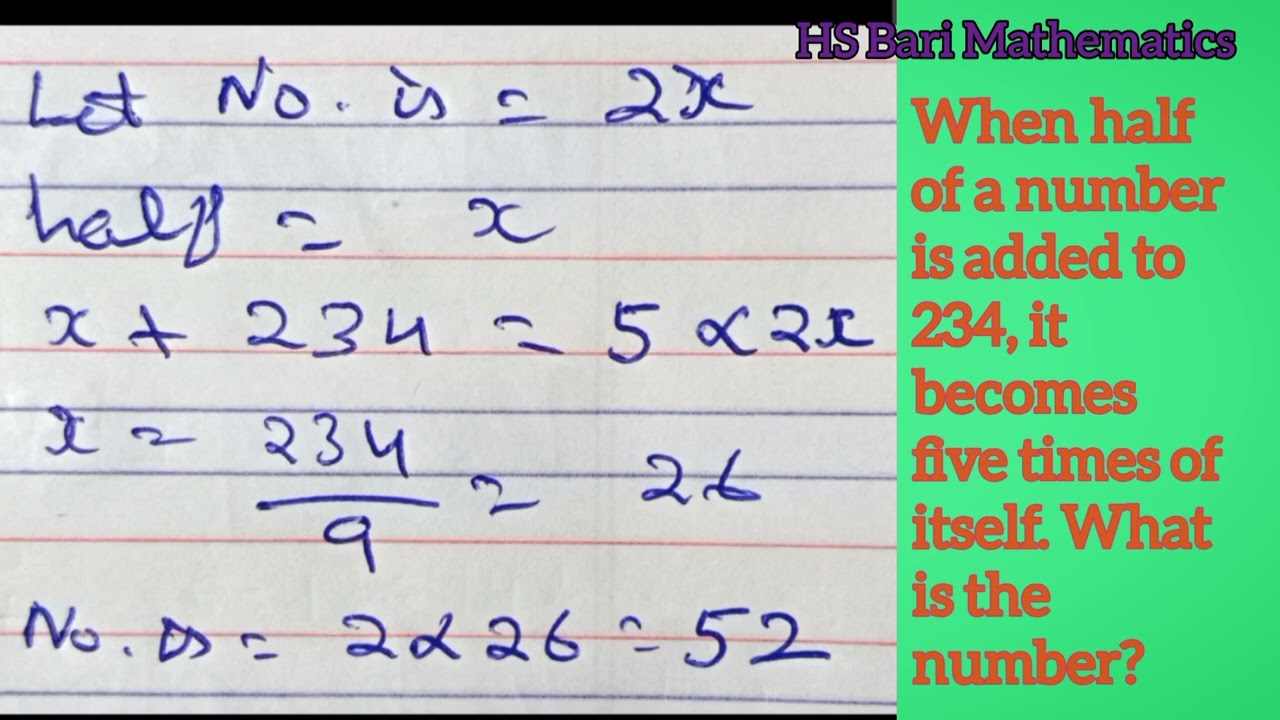 HS Bari Mathematics
Let No. is = 2x
half = x
x + 234 = 5 × 2x
x = 234/9 = 26
No. is = 2 × 26 = 52
When half
of a number
is added to
234, it
becomes
five times of
itself. What
is the
number?